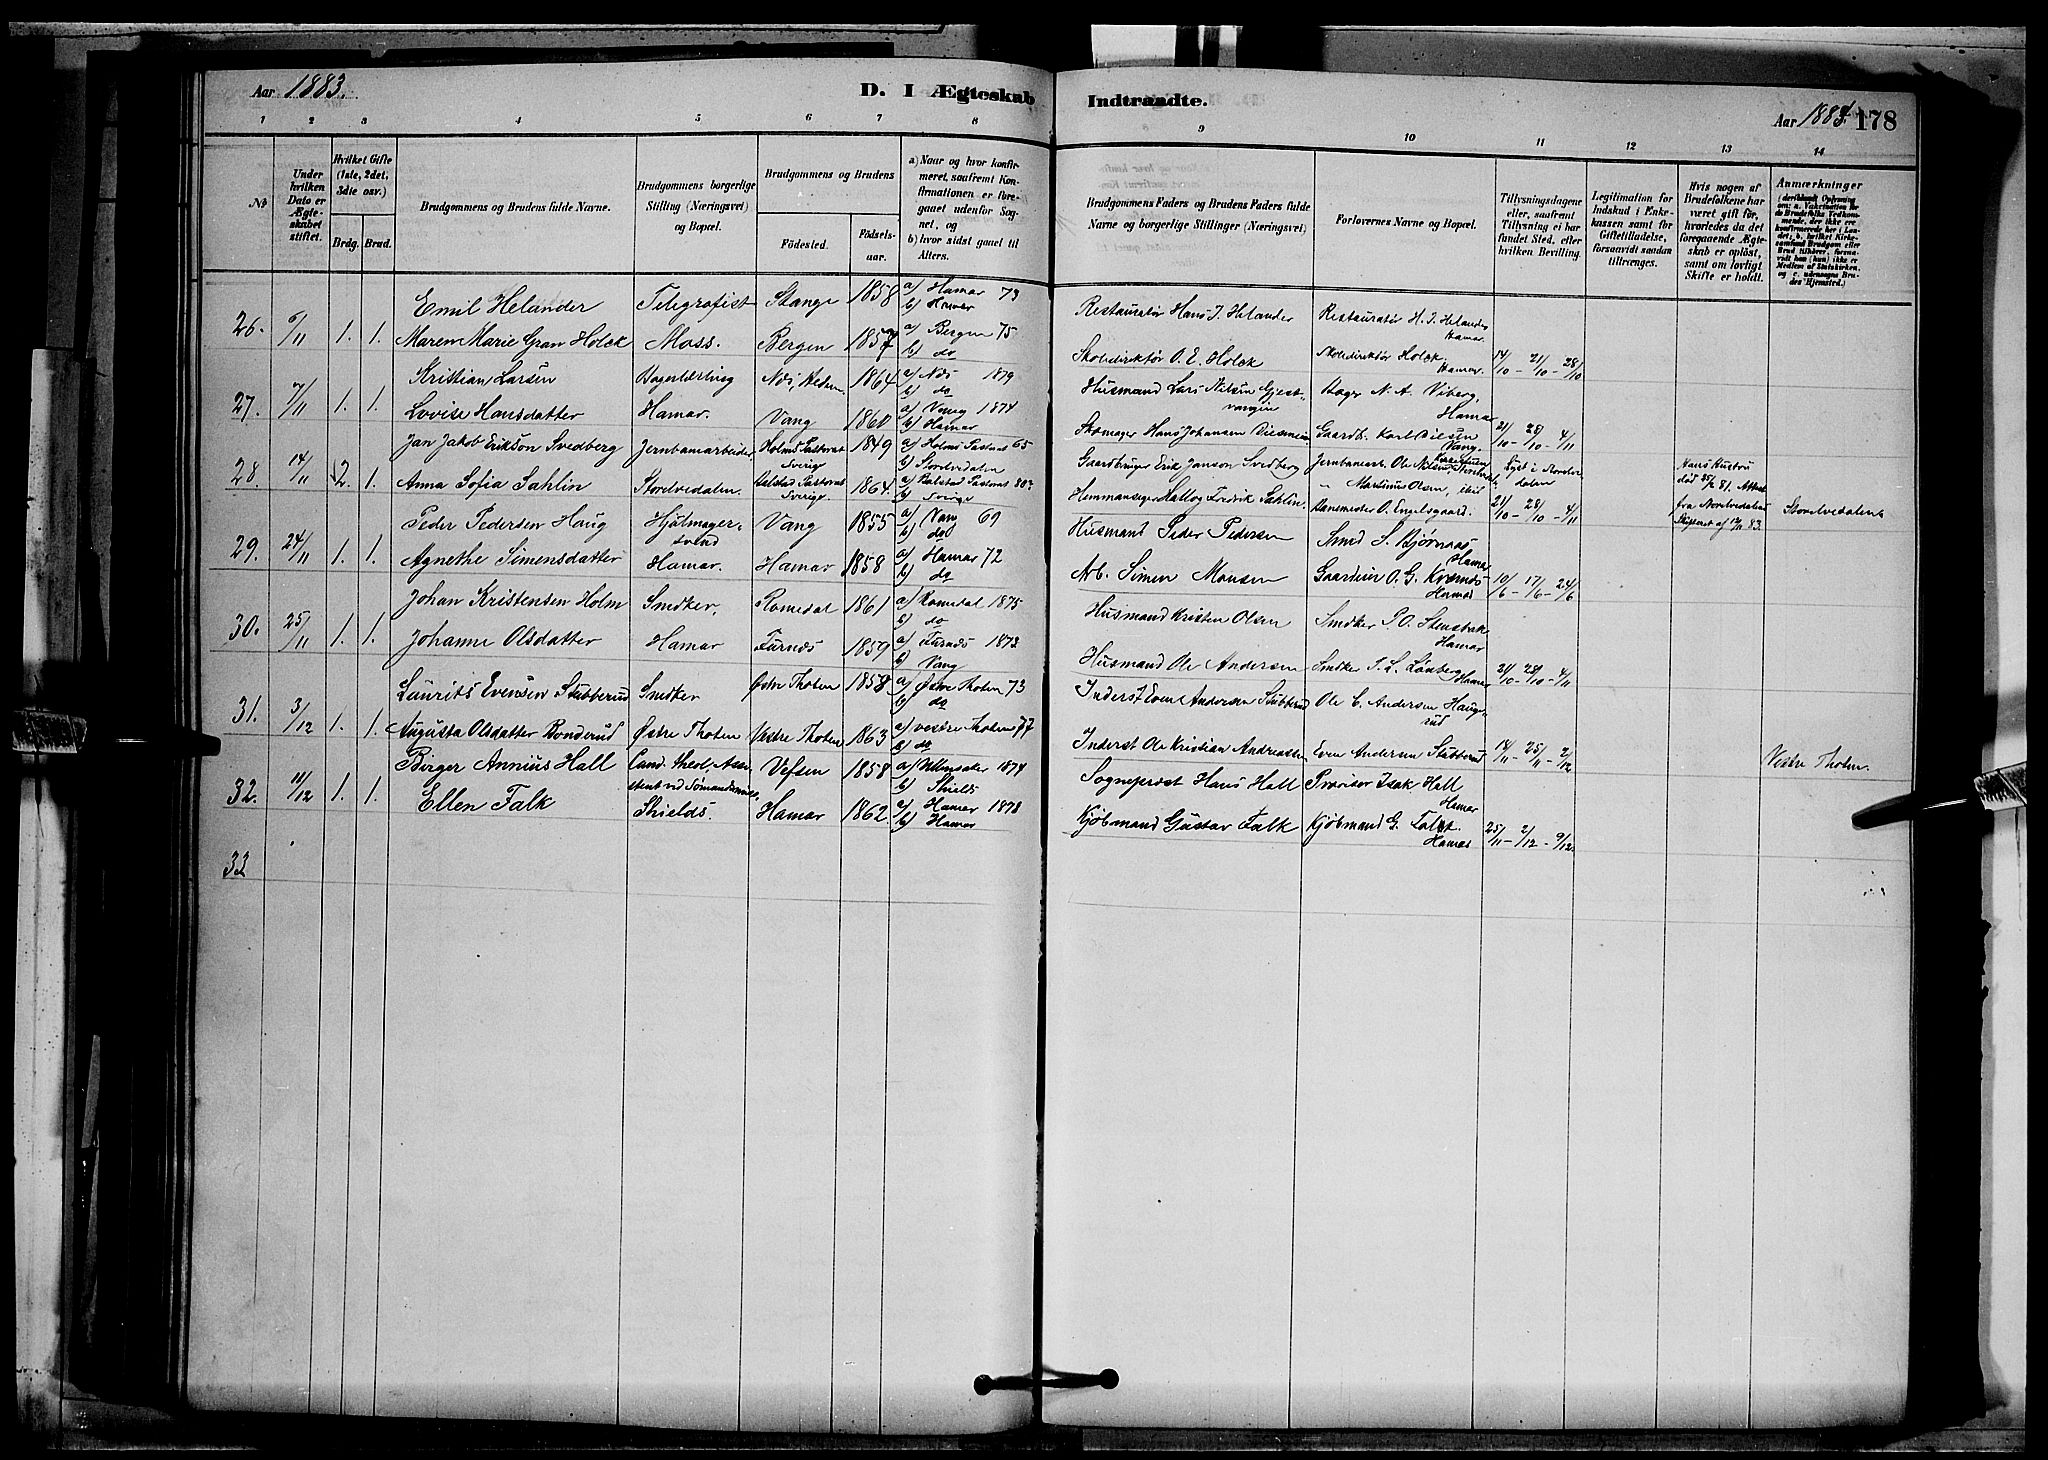 Aar 1883.
D. I Ægteskab
Indtraadte.
Aar 1883. 178
1 2 3 4 5 6 7 8
9 10 11 12 13 14
No
Under hvilken Dato er Ægteskabet stiftet.
Hvilket Gifte (1ste, 2det, 3die osv.)
Brdg. Brud.
Brudgommens og Brudens fulde Navne.
Brudgommens borgerlige Stilling (Næringsvei) og Bopæl.
Brudgommens og Brudens
Fødested.
Fødselsaar.
a) Naar og hvor konfirmeret, saafremt Konfirmationen er foregaaet udenfor Sognet, og
b) hvor sidst gaaet til Alters.
Brudgommens Faders og Brudens Faders fulde Navne og borgerlige Stillinger (Næringsvei)
Forlovernes Navne og Bopæl.
Tillysningsdagene eller, saafremt Tillysning ei har fundet Sted, efter hvilken Bevilling.
Legitimation for Indskud i Enkekassen samt for Giftetilladelse, forsaavidt saadan tiltrænges.
Hvis nogen af Brudefolkene har været gift før, hvorledes da det foregaaende Ægteskab er opløst, samt om lovligt Skifte er holdt.
Anmærkninger
Emil Helander Telegrafist Stange 1858 a) Hamar 73
b) Hamar
Restauratør Hans J. Helander Restauratør H. J. Helander
Hamar
26. 6/11 1. 1. Maren Marie Gran Holck Moss. Bergen 1857 a) Bergen 75
b) do
Skoledirektør O. E. Holck Skoledirektør Holck
Hamar 14/10 - 21/10 - 28/10
Kristian Larsen Bagerlærling Nes, Hedem. 1864 a) Nes 1879
b) do
Husmand Lars Nilsen Bager N. A. Viberg,
Hamar
27. 7/11 1. 1. Lovise Hansdatter Hamar. Vang 1860 a) Vang 1874
b) Hamar
Skomager Hans Johansen Gaardb. Karl
Vang 21/10 - 28/10 - 4/11
Jan Jakob Erikson Svedberg Jernbanearbeider Holms Pastorat
Sverige 1849 a) Holms Pastorat 65
b) Storelvedalen
Gaardbruger Erik Janson Svedberg Jernbanearb. Ole Nilsen
Lyst i Storelvedalen
Hans Hustru død 81. Attest fra Nordre Skifteret af 83.
28. 14/11 2. 1. Anna Sofia Sahlin Storelvedalen. Pastorat
Sverige 1864. a) Pastorat 80
b) Sverige
Hemmansegare Fredrik Sahlin " Martinus Olsen, ibid
Banemester O. Engelsgaard. 21/10 - 28/10 - 4/11
Storelvedalen
Peder Pedersen Haug Hjulmager-
svend Vang 1855 a) Vang 69
b) do
Husmand Peder Pedersen Smed S. Bjørnaas
Hamar
29. 24/11 1. 1. Agnethe Simensdatter Hamar. Hamar 1858 a) Hamar 72
b) do
Arb. Simen Monsen O. G. Kværnes
Hamar 10/6 - 17/6 - 24/6
Johan Kristensen Holm Snedker, Romedal 1861 a) Romedal 1875
b) do
Husmand Kristen Olsen Snedker P. O. Stensbak
Hamar
30. 25/11 1. 1. Johanne Olsdatter Hamar Furnæs 1859 a) Furnæs 1873
b) Vang
Husmand Ole Andersen Snedker P. L. Lønberg
Hamar 21/10 - 28/10 - 4/11
Laurits Evensen Stubberud Snedker Østre Thoten 1858 a) Østre Thoten 73
b) do
Inderst Even Andersen Stubberud Ole C. Andersen Haugerud
31. 3/12 1. 1. Augusta Olsdatter Bonderud Østre Thoten Vestre Thoten 1863 a) vestre Thoten 77
b) do
Inderst Ole Kristian Andreassen Even Andersen Stubberud 18/11 - 25/11 - 2/12
Vestre Thoten.
Berger Annius Hall Cand. theol. Assistent ved Sømandsmis. Vefsen 1858 a) Ullensaker 1874
b) Shields
Sogneprest Hans Hall Provisor Isak Hall
Hamar
32. 11/12 1. 1. Ellen Falk Shields. Hamar 1862. a) Hamar 1878
b) Hamar
Kjøbmand Gustav Falk Kjøbmand G. Falk.
Hamar 25/11 - 2/12 - 9/12
33